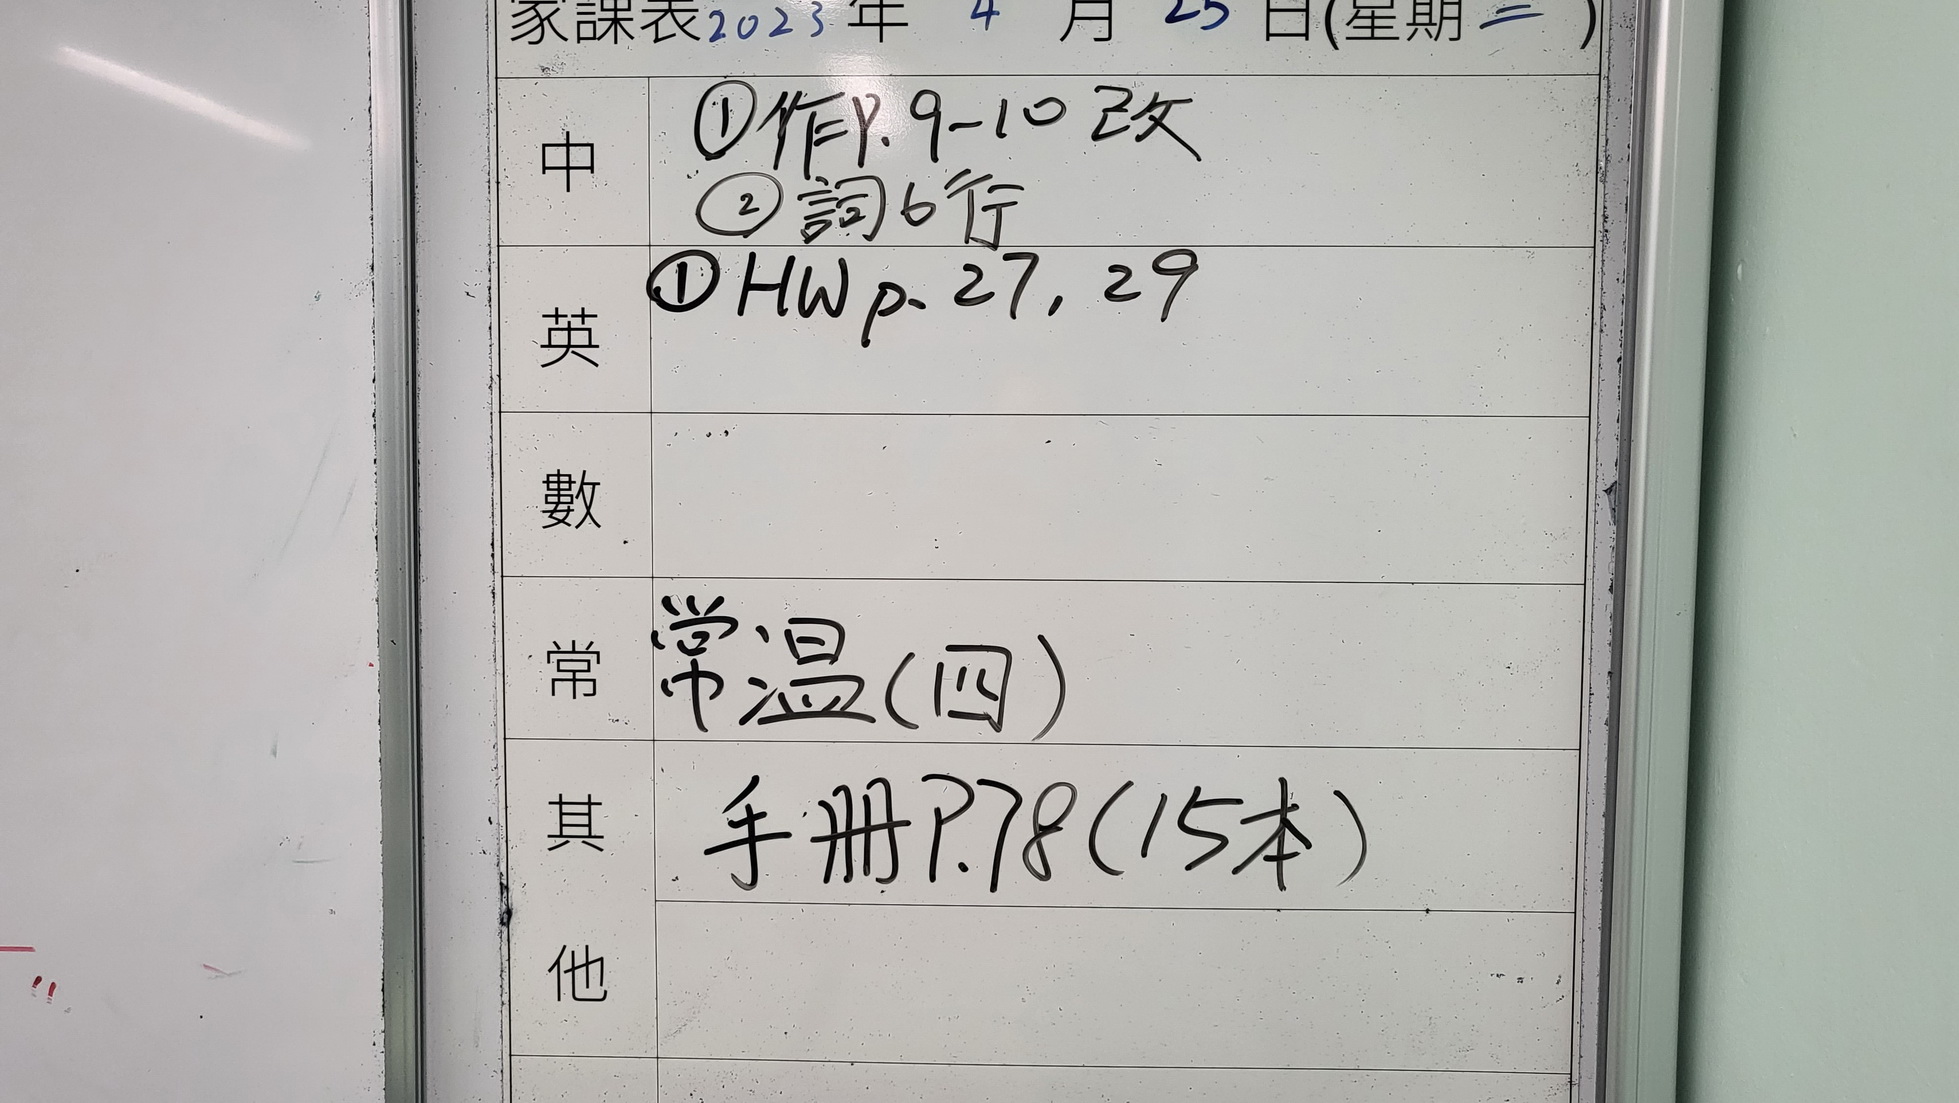 家課表2023年 4 月 25 日(星期二)
中
①作P.9-10改
②詞6行
英
①HW p. 27, 29
數
常
常溫(四)
其他
手册P.78(15本)